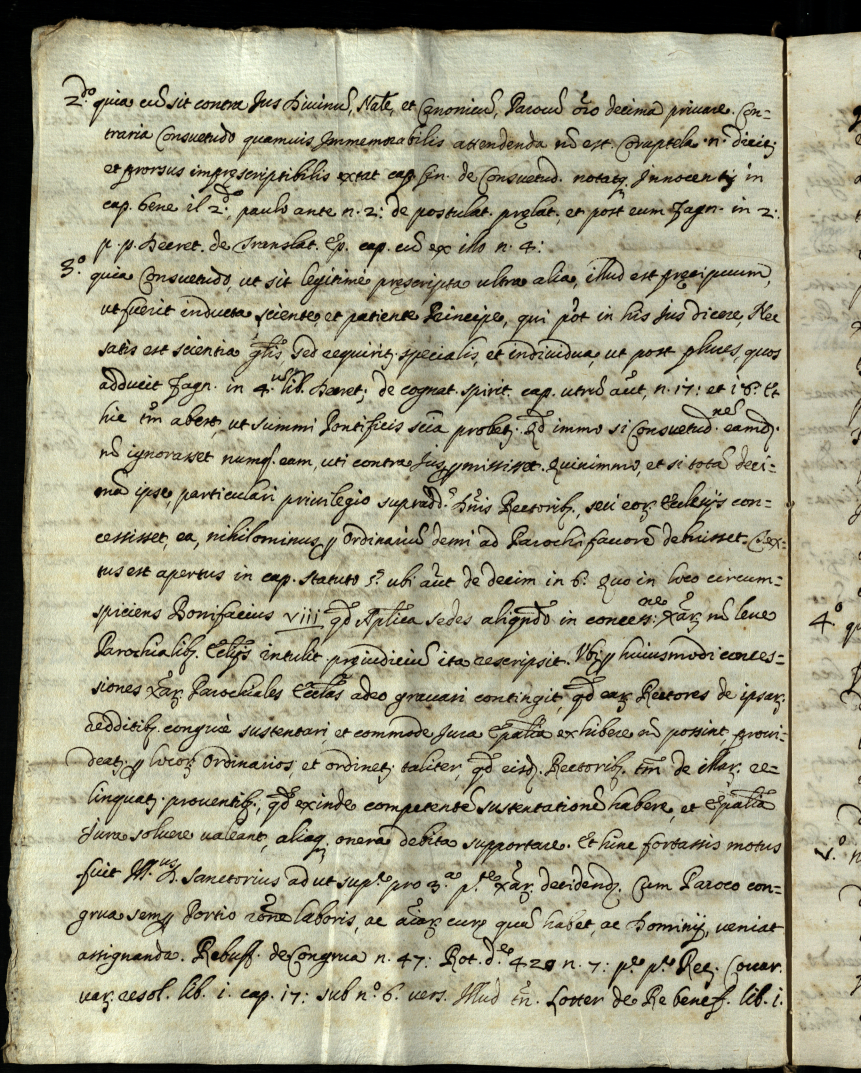 2.do quia cũ sit contra Jus Divinũ, Nat.le, et Canonicũ, Parocũ õio decimã privare. Con-
traria Consuetudo quamuis Immemorabilis attendenda nõ est. Coruptela n. dicit.
et prorsus imprescriptibilis extat cap. fin. de Consuetud. notat. Innocent. in
cap. bene il 2.do paulo ante n. 2: de postulat. prelat, et post eum Fagn. in 2:
p. p. Decret. de Translat. Ep. cap. cũ ex illo n. 4:
3.o quia Consuetudo, ut sit legitimè prescripta ultra alia, illud est precipuum,
ut fuerit inducta sciente, et patiente Principe, qui põt in his Jus dicere, Nec
satis est scientia g̃lis, sed requirit. specialis, et individua, ut post plures, quos
adducit Fagn. in 4. lib. Decret. de cognat. spirit. cap. utrũ aũt, n. 17: et 18: Et
hic tm̃ aberit, ut summi Pontificis scĩa probet. Qd̃ immo si Consuetud.nem eamd.
nõ ignorasset numq. eam, uti contra Jus permisisset. Quinimmo, et si totã deci-
mã ipse, particulari privilegio supradd. hũis Rectorib., seu eor. Ecclijs con-
cessisset, ea, nihilominus, p Ordinariũ demi ad Parochi favorẽ debuisset. Tex-
tus est apertus in cap. statuto §. ubi aũt de decim in 6.o Quo in loco circum-
spiciens Bonifacius VIII qd̃ Aplĩca sedes aliqñdo in concess.ne x̃ar. nõ leve
Parochialib. Ecclijs intulit prejudiciũ ita rescripsit. Ubi p huiusmodi conces-
siones x̃ar. Parochiales Ecclas adeo gravari contingit, qd̃ ear. Rectores de ipsar.
redditib. congruè sustentari et commode Jura Epalia exhibere nõ possint, provi-
deat. p locor. Ordinarios, et ordinet. taliter, qd̃ eisd. Rectorib. tm̃ de illar. re-
linquat. proventib., qd̃ exinde competentẽ sustentationẽ habere, et Epalia
Jura solvere valeant, aliaq. onera debita supportare. Et hinc fortassis motus
fuit Sanctorius ad ut sup.te pro 3.a p.te x̃ar. decidend. Cum Paroco con-
grua semp Portio rõne laboris, ac aĩar. cure quã habet, ac Dominij, veniat
assignanda. Rebuff. de Congrua n. 47: Rot. d.o 420 n. 7: p.e p.te Rec. Covar.
var. resol. lib. i. cap. 17: sub n.o 6. vers. Illud tñ. Lotter de Re benef. lib. i.